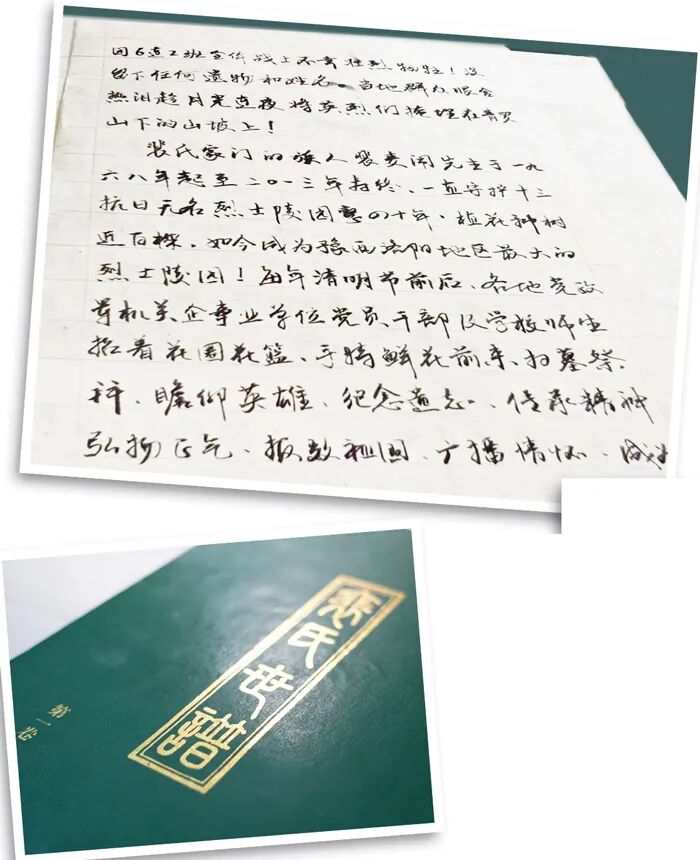 团6连2班全体战士不幸壮烈牺牲！没
留下任何遗物和姓名。当地群众眼含
热泪趁月光连夜将英烈们掩埋在青
山下的山坡上！
裴氏家门的族人裴 闹先生于一九
六八年起至二〇一三年 终，一直守护十三
抗日无名烈士陵园 四十年，植花种树
近百棵，如今成为豫西洛阳地区最大的
烈士陵园！每年清明节前后，各地党政
军机关企事业单位党员干部及学校师生
抬着花圈花篮、手捧鲜花前来扫墓祭
拜、瞻仰英雄、纪念遗志、传承精神
弘扬正气、报效祖国、广播情怀、
裴氏世谱
第一卷